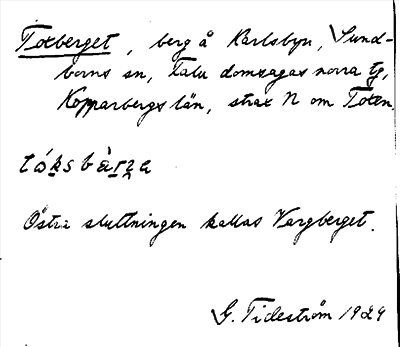 Toxberget, berg å Karlsbyn, Sund-
borns sn, Falu domsagas norra tg,
Kopparbergs län, strax N om Toxen.
tóksbàrʒa
Östra sluttningen kallas Vargberget.
G. Tideström 1924